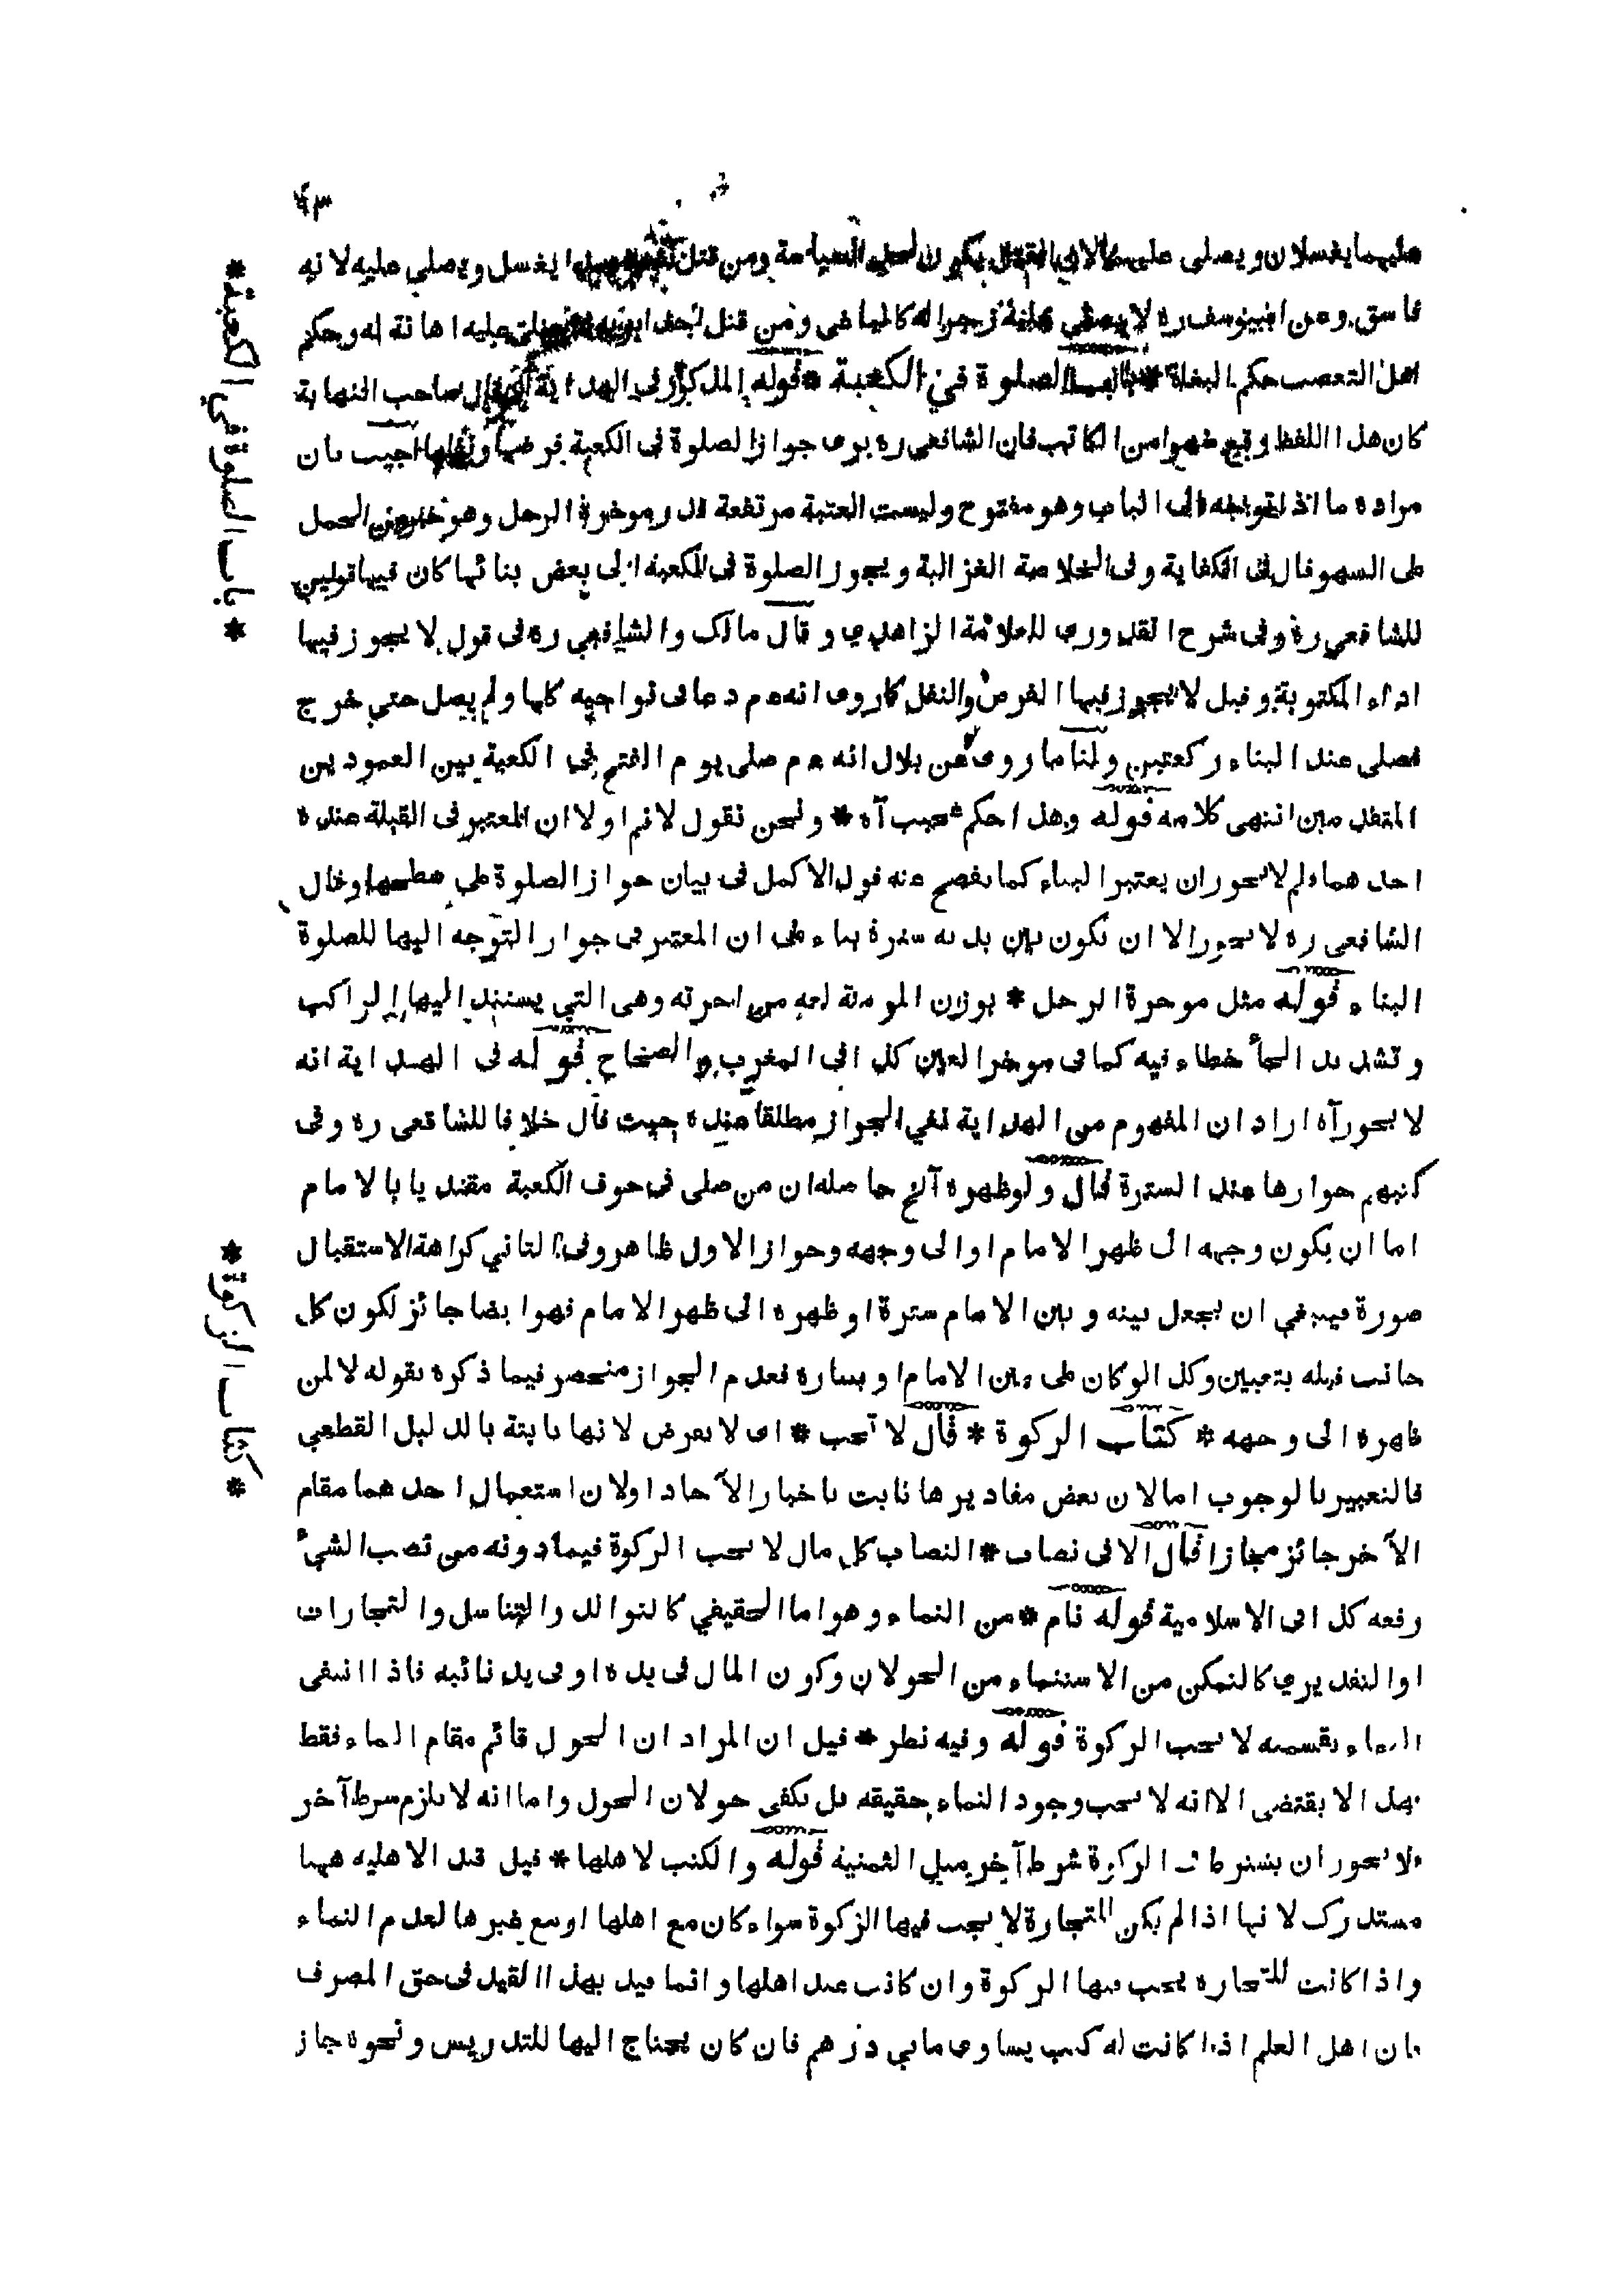 ٧٣
عليهما يغسلان ويصلى عليهما لان القتل يكون السياسة ومن قتل نفسه يغسل ويصلي عليه لانه
فاسق وعن ابييوسف ره لا يصلي عليه زجرا له كالباغى ومن قتل احد ابويه لا يصلى عليه اهانة له وحكم
اهل التعصب حكم البغاة * باب الصلوة في الكعبة * قوله المذكور فى الهداية آه قال صاحب النهاية
كان هذا اللفظ وقع سهوا من الكاتب فان الشافعى ره يرى جواز الصلوة فى الكعبة فرضها ونفلها اجيب بان
مراده ما اذا توجه الى الباب وهو مفتوح وليست العتبة مرتفعة قدر موخرة الرحل وهو خير من الحمل
على السهو قال فى الكفاية وفى الخلاصة الغزالية ويجوز الصلوة فى الكعبة الى بعض بنائها كان فيها قولين
للشافعي ره وفى شرح القدورى للعلامة الزاهدى وقال مالك والشافعي ره فى قول لا يجوز فيها
اداء المكتوبة وقيل لا يجوز فيها الفرض والنفل كما روى انه عم دعا فى نواحيه كلها ولم يصل حتي خرج
فصلى عند البناء ركعتين ولنا ما روى عن بلال انه عم صلى يوم الفتح فى الكعبة بين العمودين
المتقدمين انتهى كلامه قوله وهذا حكم عجيب آه * ونحن نقول لا نم اولا ان المعتبر فى القبلة عنده
احدهما ولم لا يجوز ان يعتبر البناء كما يفصح عنه قول الاكمل فى بيان جواز الصلوة على سطحها وقال
الشافعى ره لا يجوز الا ان يكون بين يديه سترة بناء على ان المعتبر فى جواز التوجه اليها للصلوة
البناء قوله مثل موخرة الرحل * بوزن المومنة لغة من اخرته وهى التي يستند اليها الراكب
وتشديد الخاء خطاء فيه كما فى موخر العين كذا فى المغرب و الصحاح قوله فى الهداية انه
لا يجوز آه اراد ان المفهوم من الهداية نفي الجواز مطلقا عنده حيث قال خلافا للشافعى ره وفى
كتبهم جوازها عند السترة قال ولو ظهره آلخ حاصله ان من صلى فى جوف الكعبة مقتديا بالامام
اما ان يكون وجهه الى ظهر الامام او الى وجهه وجواز الاول ظاهر وفى الثاني كراهة الاستقبال
صورة فينبغي ان يجعل بينه و بين الامام سترة او ظهره الى ظهر الامام فهو ايضا جائز لكون كل
جانب قبلة بتعيين وكذا لو كان على يمين الامام او يساره فعدم الجواز منحصر فيما ذكره بقوله لا لمن
ظهره الى وجهه * كتاب الزكوة * قال لا تجب * اى لا يفرض لانها ثابتة بالدليل القطعي
فالتعبير بالوجوب اما لان بعض مقاديرها ثابت باخبار الآحاد او لان استعمال احدهما مقام
الآخر جائز مجازا قال الا فى نصاب * النصاب كل مال لا يجب الزكوة فيما دونه من نصب الشيء
رفعه كذا فى الاسلامية قوله نام * من النماء وهو اما الحقيقي كالتوالد والتناسل والتجارات
او التقديري كالتمكن من الاستنماء من الحولان وكون المال فى يده او فى يد نائبه فاذا انتفى
النماء بقسميه لا يجب الزكوة قوله وفيه نظر * قيل ان المراد ان الحول قائم مقام النماء فقط
بهذا لا يقتضى الا انه لا يجب وجود النماء حقيقه بل يكفى حولان الحول واما انه لا يلزم شرط آخر
ولا يجوز ان يشترط فى الزكوة شرط آخر مثل الثمنية قوله والكتب لاهلها * قيل قيد الاهليه ههنا
مستدرك لانها اذا لم يكن للتجارة لا يجب فيها الزكوة سواء كان مع اهلها او مع غيرها لعدم النماء
واذا كانت للتجاره يجب فيها الزكوة وان كانت عند اهلها وانما يفيد بهذا القيد فى حق المصرف
فان اهل العلم اذا كانت له كتب يساوى مايي درهم فان كان يحتاج اليها للتدريس ونحوه جاز
* باب الصلوة في الكعبة *
* كتاب الزكوة *